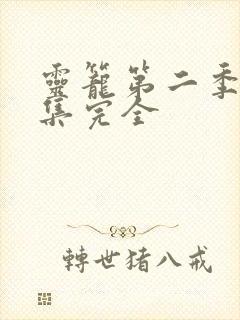 靈籠第二季
集完全
轉世猪八戒